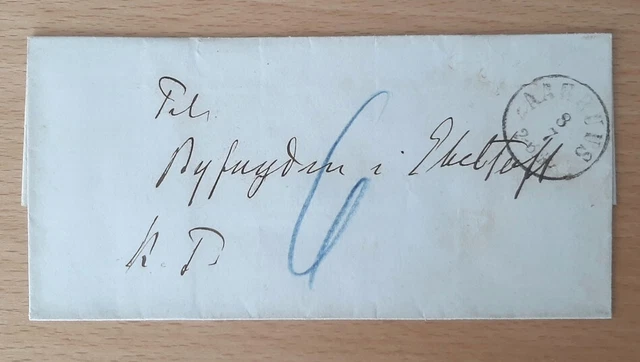 Til
Byfogden i Ebeltoft
K. T.
6
AARHUUS